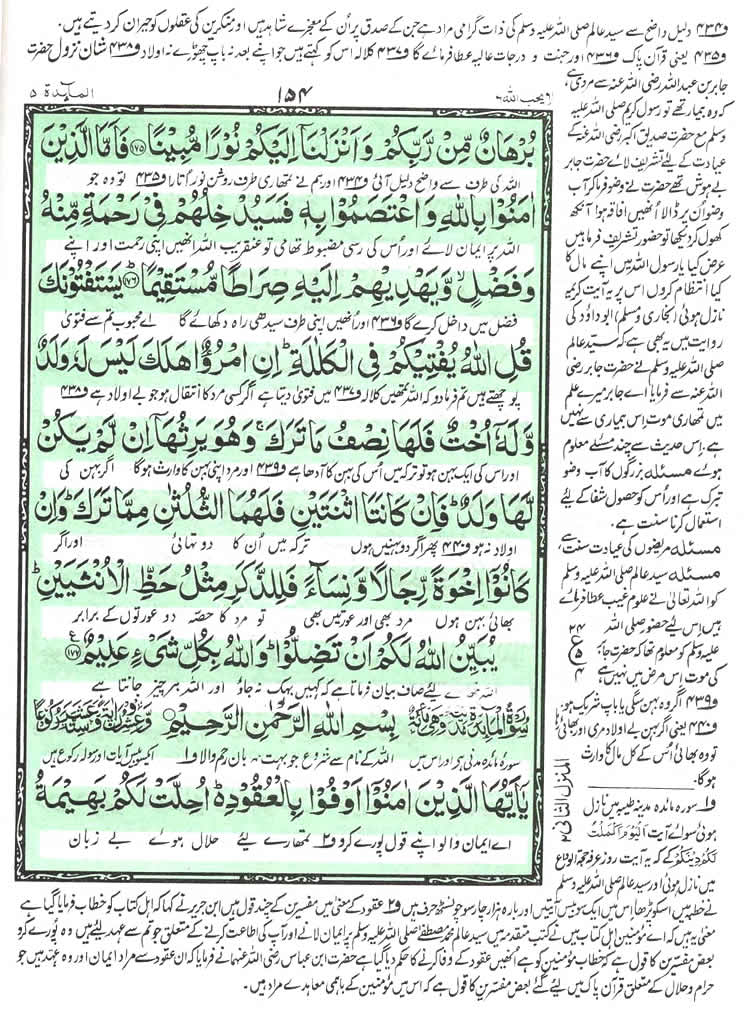 و۴۳۴ دلیل واضح سے سید عالم صلی اللہ علیہ وسلم کی ذات گرامی مراد ہے جن کے صدق پر اُن کے معجزے شاہد ہیں اور منکرین کی عقلوں کو حیران کر دیتے ہیں۔
و۴۳۵ یعنی قرآن پاک و۴۳۶ اور جنت و درجات عالیہ عطا فرمائے گا و۴۳۷ کلالہ اس کو کہتے ہیں جو اپنے بعد نہ باپ چھوڑے نہ اولاد و۴۳۸ شان نزول حضرت
یحب اللہ ۶
۱۵۴
المآیدۃ ۵
بُرْهَانٌ مِّنْ رَّبِّكُمْ وَاَنْزَلْنَاۤ اِلَیْكُمْ نُوْرًا مُّبِیْنًا ﴿۱۷۵﴾ فَاَمَّا الَّذِیْنَ
اللہ کی طرف سے واضح دلیل آئی و۴۳۴ اور ہم نے تمھاری طرف روشن نور اُتارا و۴۳۵ تو وہ جو
اٰمَنُوْا بِاللّٰهِ وَاعْتَصَمُوْا بِهٖ فَسَیُدْخِلُهُمْ فِیْ رَحْمَةٍ مِّنْهُ
اللہ پر ایمان لائے اور اُس کی رسی مضبوط تھامی تو عنقریب اللہ انھیں اپنی رحمت اور اپنے
وَفَضْلٍ ۙ وَّیَهْدِیْهِمْ اِلَیْهِ صِرَاطًا مُّسْتَقِیْمًا ﴿۱۷۶﴾ یَسْتَفْتُوْنَكَ
فضل میں داخل کرے گا و۴۳۶ اور اُنھیں اپنی طرف سیدھی راہ دکھائے گا اے محبوب تم سے فتویٰ
قُلِ اللّٰهُ یُفْتِیْكُمْ فِی الْكَلٰلَةِ ؕ اِنِ امْرُؤٌا هَلَكَ لَیْسَ لَهٗ وَلَدٌ
پوچھتے ہیں تم فرمادو کہ اللہ تمھیں کلالہ و۴۳۷ میں فتویٰ دیتا ہے اگر کسی مرد کا انتقال ہو جو بے اولاد ہے و۴۳۸
وَّلَهٗۤ اُخْتٌ فَلَهَا نِصْفُ مَا تَرَكَ ۚ وَهُوَ یَرِثُهَاۤ اِنْ لَّمْ یَكُنْ
اور اس کی ایک بہن ہو تو ترکہ میں اُس کی بہن کا آدھا ہے و۴۳۹ اور مرد اپنی بہن کا وارث ہوگا اگر بہن کی
لَّهَا وَلَدٌ ؕ فَاِنْ كَانَتَا اثْنَتَیْنِ فَلَهُمَا الثُّلُثٰنِ مِمَّا تَرَكَ ؕ وَاِنْ
اولاد نہ ہو و۴۴۰ پھر اگر دو بہنیں ہوں ترکہ میں اُن کا دو تہائی اور اگر
كَانُوْۤا اِخْوَةً رِّجَالًا وَّنِسَآءً فَلِلذَّكَرِ مِثْلُ حَظِّ الْاُنْثَیَیْنِ ؕ
بھائی بہن ہوں مرد بھی اور عورتیں بھی تو مرد کا حصّہ دو عورتوں کے برابر
یُبَیِّنُ اللّٰهُ لَكُمْ اَنْ تَضِلُّوْا ؕ وَاللّٰهُ بِكُلِّ شَیْءٍ عَلِیْمٌ ﴿۱۷۷﴾ ع
لئے صاف بیان فرماتا ہے کہ کہیں بہک نہ جاؤ اور اللہ ہر چیز جانتا ہے
بِسْمِ اللّٰهِ الرَّحْمٰنِ الرَّحِیْمِ
سورۂ مائدہ مدنی ہے اور اس میں اللہ کے نام سے شروع جو بہت مہربان رحم والا و۱ ایک سو بیس آیات اور سولہ رکوع ہیں
یٰۤاَیُّهَا الَّذِیْنَ اٰمَنُوْۤا اَوْفُوْا بِالْعُقُوْدِ ؕ اُحِلَّتْ لَكُمْ بَهِیْمَةُ
اے ایمان والو اپنے قول پورے کرو و۲ تمھارے لئے حلال ہوئے بے زبان
جابر بن عبداللہ رضی اللہ عنہ سے مروی ہے
کہ وہ بیمار تھے تو رسول کریم صلی اللہ علیہ
وسلم مع حضرت صدیق اکبر رضی اللہ عنہ کے
عیادت کے لئے تشریف لائے حضرت جابر
بے ہوش تھے حضرت نے وضو فرما کر آب
وضو اُن پر ڈالا اُنھیں افاقہ ہوا آنکھ
کھول کر دیکھا تو حضور تشریف فرما ہیں
عرض کیا یا رسول اللہ میں اپنے مال کا
کیا انتظام کروں اس پر یہ آیت کریمہ
نازل ہوئی (بخاری ومسلم) ابو داؤد کی
روایت میں یہ بھی ہے کہ سید عالم
صلی اللہ علیہ وسلم نے حضرت جابر رضی
اللہ عنہ سے فرمایا اے جابر میرے علم
میں تمھاری موت اس بیماری سے نہیں
ہے۔ اس حدیث سے چند مسئلے معلوم
ہوئے مسئلہ بزرگوں کا آب وضو
تبرک ہے اور اُس کو حصول شفا کے لئے
استعمال کرنا سنت ہے۔
مسئلہ مریضوں کی عیادت سنت ہے
مسئلہ سید عالم صلی اللہ علیہ وسلم
کو اللہ تعالیٰ نے علوم غیب عطا فرمائے
ہیں اس لئے حضور صلی اللہ
علیہ وسلم کو معلوم تھا کہ حضرت جابر
کی موت اس مرض میں نہیں ہے
۲۴
ع
۵
۴
و۴۳۹ اگر وہ بہن سگی یا باپ شریک ہو
و۴۴۰ یعنی اگر بہن بے اولاد مری اور بھائی رہا
تو وہ بھائی اُس کے کل مال کا وارث
ہوگا۔
المنزل الثانی ۲
و۱ سورہ مائدہ مدینہ طیبہ میں نازل
ہوئی سوائے آیت اَلْیَوْمَ اَکْمَلْتُ
لَکُمْ دِیْنَکُمْ کے کہ یہ آیت روز عرفہ حجۃ الوداع
میں نازل ہوئی اور سید عالم صلی اللہ علیہ وسلم
نے خطبہ میں اسکو پڑھا اس میں ایک سو بیس آیتیں اور بارہ ہزار چار سو چونسٹھ حرف ہیں و۲ عقود کے معنی میں مفسرین کے چند قول ہیں ابن جریر نے کہا کہ اہل کتاب کو خطاب فرمایا گیا ہے
معنی یہ ہیں کہ اے مؤمنین اہل کتاب میں نے کتب متقدمہ میں سید عالم محمد مصطفےٰ صلی اللہ علیہ وسلم پر ایمان لانے اور آپ کی اطاعت کرنے کے متعلق جو تم سے عہد لئے ہیں وہ پورے کرو
بعض مفسّرین کا قول ہے کہ خطاب مؤمنین کو ہے اُنھیں عقود کے وفا کرنے کا حکم دیا گیا ہے حضرت ابن عباس رضی اللہ عنہما نے فرمایا کہ ان عقود سے مراد ایمان اور وہ عہد ہیں جو
حرام و حلال کے متعلق قرآن پاک میں لئے گئے بعض مفسّرین کا قول ہے کہ اس میں مؤمنین کے باہمی معاہدے مراد ہیں۔